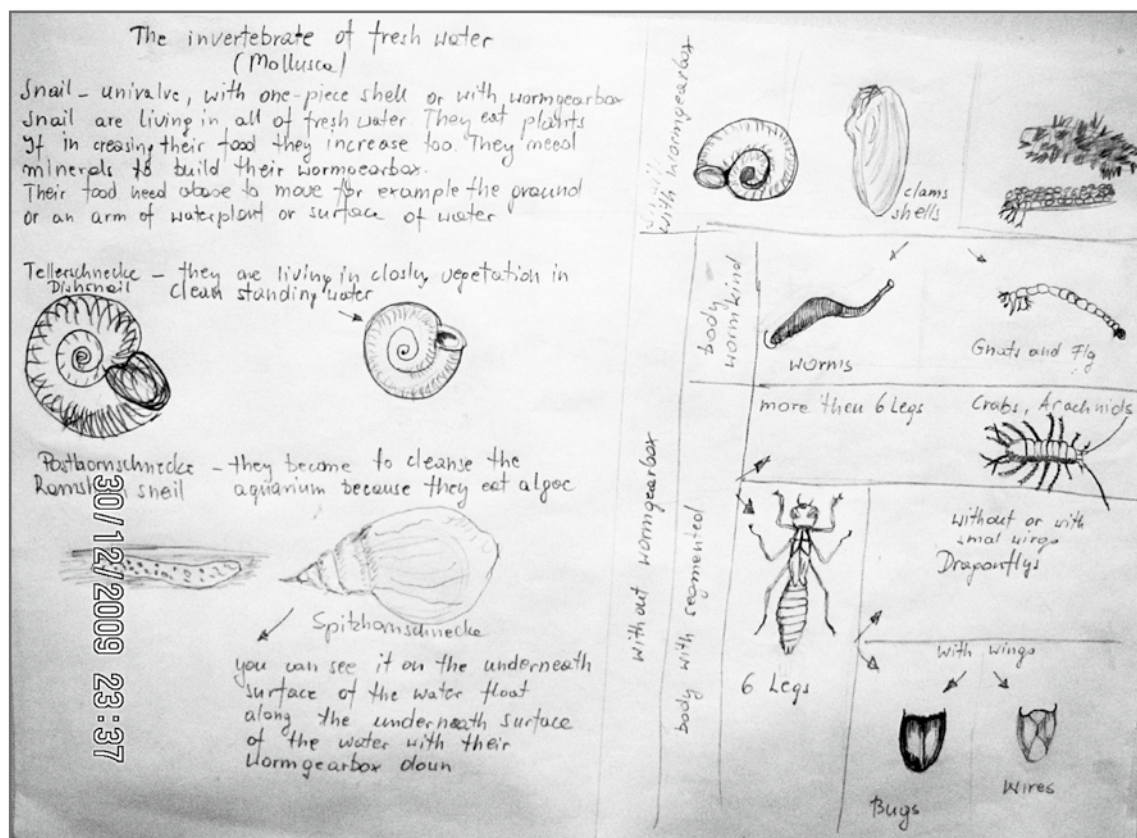 The invertebrate of fresh water
(Mollusca)
Snail - univalve, with one-piece shell or with wormgearbox
Snail are living in all of fresh water. They eat plants
If in creasing their food they increase too. They need
minerals to build their wormgearbox.
Their food need above to move for example the ground
or an arm of waterplant or surface of water
Tellerschnecke - they are living in closly vegetation in
Dishsnail clean standing water
Posthornschnecke - they become to cleanse the
Ramshorn sneil aquarium because they eat algae
Spitzhornschnecke
you can see it on the underneath
surface of the water float
along the underneath surface
of the water with their
wormgearbox doun
30/12/2009 23:37
with wormgearbox
clams
shells
without wormgearbox
body
wormkind
worms
Gnats and Fly
body with segmented
more then 6 Legs
Crabs, Arachnids
6 Legs
without or with
smal wings
Dragonflys
with wings
Bugs
Wires